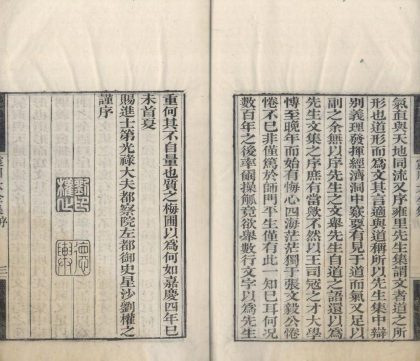 氣直與天地同流又序雍里先生集謂文者道之所
形也道形而爲文其言適與道稱所以先生集中辯
別義理發揮經濟洞中窾要有見于道而氣又足以
副之余無以序先生之文舉先生自道之語還以爲
先生文集之序庶有當歟不然以王司寇之才大學
博至晚年而始有悔心四海茫茫獨于張文毅公惓
惓不巳非僅於師門平生僅有此一知巳耳何况
數百年之後率爾操觚竟欲舉數行文字以爲先生
重何其不自量也質之梅圃以爲何如嘉慶四年巳
未首夏
賜進士第光祿大夫都察院左都御史星沙劉權之
謹序
三